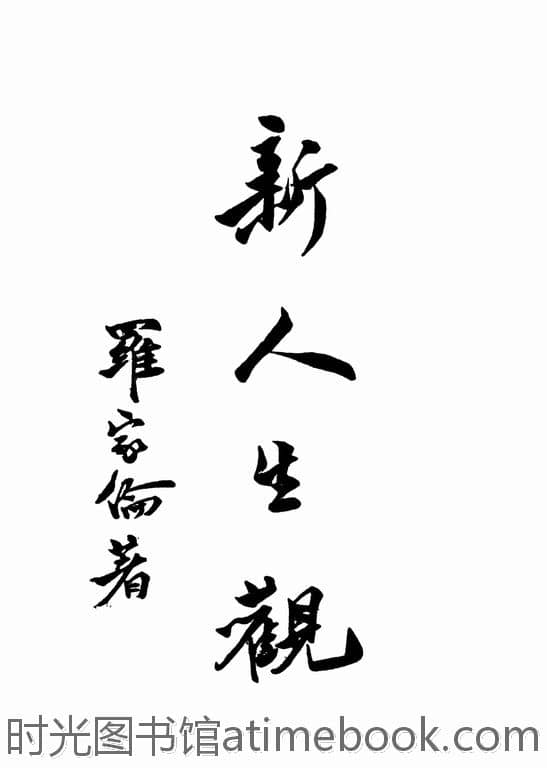 新人生觀
羅家倫著
时光图书馆atimebook.com